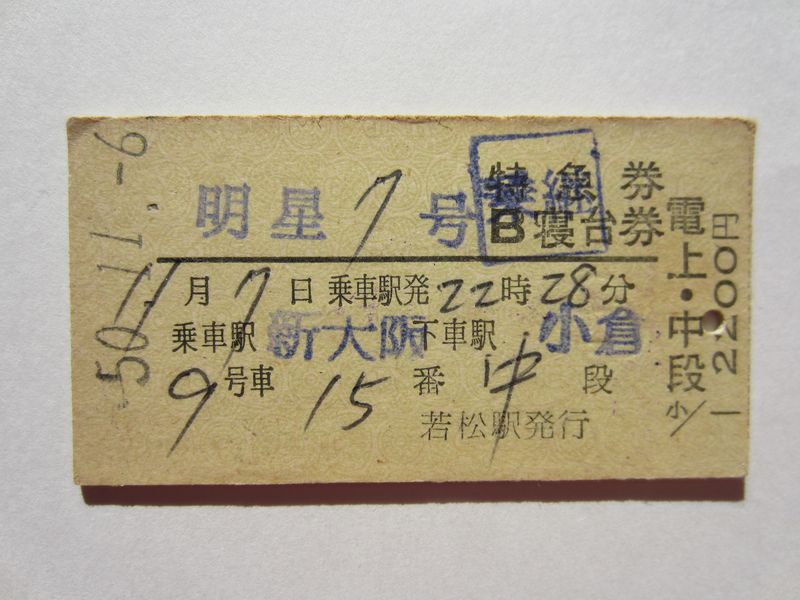 50.11.-6
明星 7 号
特急券
B寝台券
乗継
11月7日 乗車駅発 22時28分
乗車駅 新大阪 下車駅 小倉
9号車 15番 中段
若松駅発行
電上・中段 小/
2200円